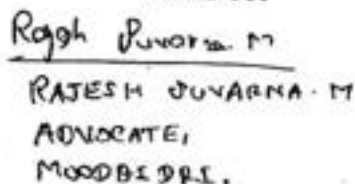 Rajesh Suvarna. M
RAJESH SUVARNA. M
ADVOCATE,
MOODBIDRI.